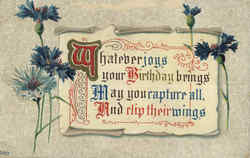 Whatever joys
your Birthday brings
May you capture all,
And clip their wings